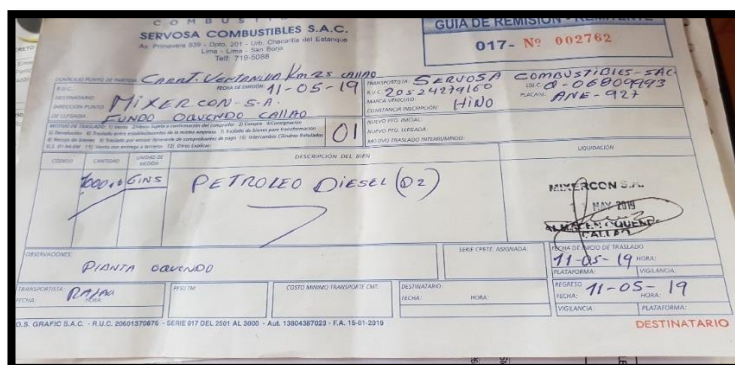 COMBUSTI
SERVOSA COMBUSTIBLES S.A.C.
Av. Primavera 939 - Dpto. 201 - Urb. Chacarilla del Estanque
Lima - Lima - San Borja
Telf: 719-5088
GUIA DE REMISION - REMITENTE
017- Nº 002762
DOMICILIO PUNTO DE PARTIDA: CARRT. VENTANILLA Km 25 CALLAO
R.U.C. FECHA DE EMISIÓN: 11-05-19
DESTINATARIO: MIXERCON S.A.
DIRECCION PUNTO DE LLEGADA: FUNDO OQUENDO CALLAO
TRANSPORTISTA: SERVOSA COMBUSTIBLES-SAC
R.U.C. 20524279160 LIC. Q-06809993
MARCA VEHICULO: HINO PLACA Nº: ANE-927
CONSTANCIA INSCRIPCIÓN:
01
NUEVO PTO. INICIAL:
NUEVO PTO. LLEGADA:
MOTIVO TRASLADO INTERRUMPIDO:
CODIGO CANTIDAD UNIDAD DE MEDIDA DESCRIPCION DEL BIEN LIQUIDACIÓN
1000 GlNS PETROLEO DIESEL (D2)
MIXERCON S.A.
MAY 2019
CALLAO
OBSERVACIONES: PLANTA OQUENDO
SERIE CPBTE. ASIGNADA:
FECHA DE INICIO DE TRASLADO
11-05-19 HORA:
PLATAFORMA: VIGILANCIA:
TRANSPORTISTA:
FECHA: HORA:
PESO TM:
COSTO MINIMO TRANSPORTE CMT:
DESTINATARIO
FECHA: HORA:
REGRESO
FECHA: 11-05-19 HORA:
VIGILANCIA: PLATAFORMA:
O.S. GRAFIC S.A.C. - R.U.C. 20601370676 - SERIE 017 DEL 2501 AL 3000 - Aut. 13804387023 - F.A. 15-01-2019
DESTINATARIO